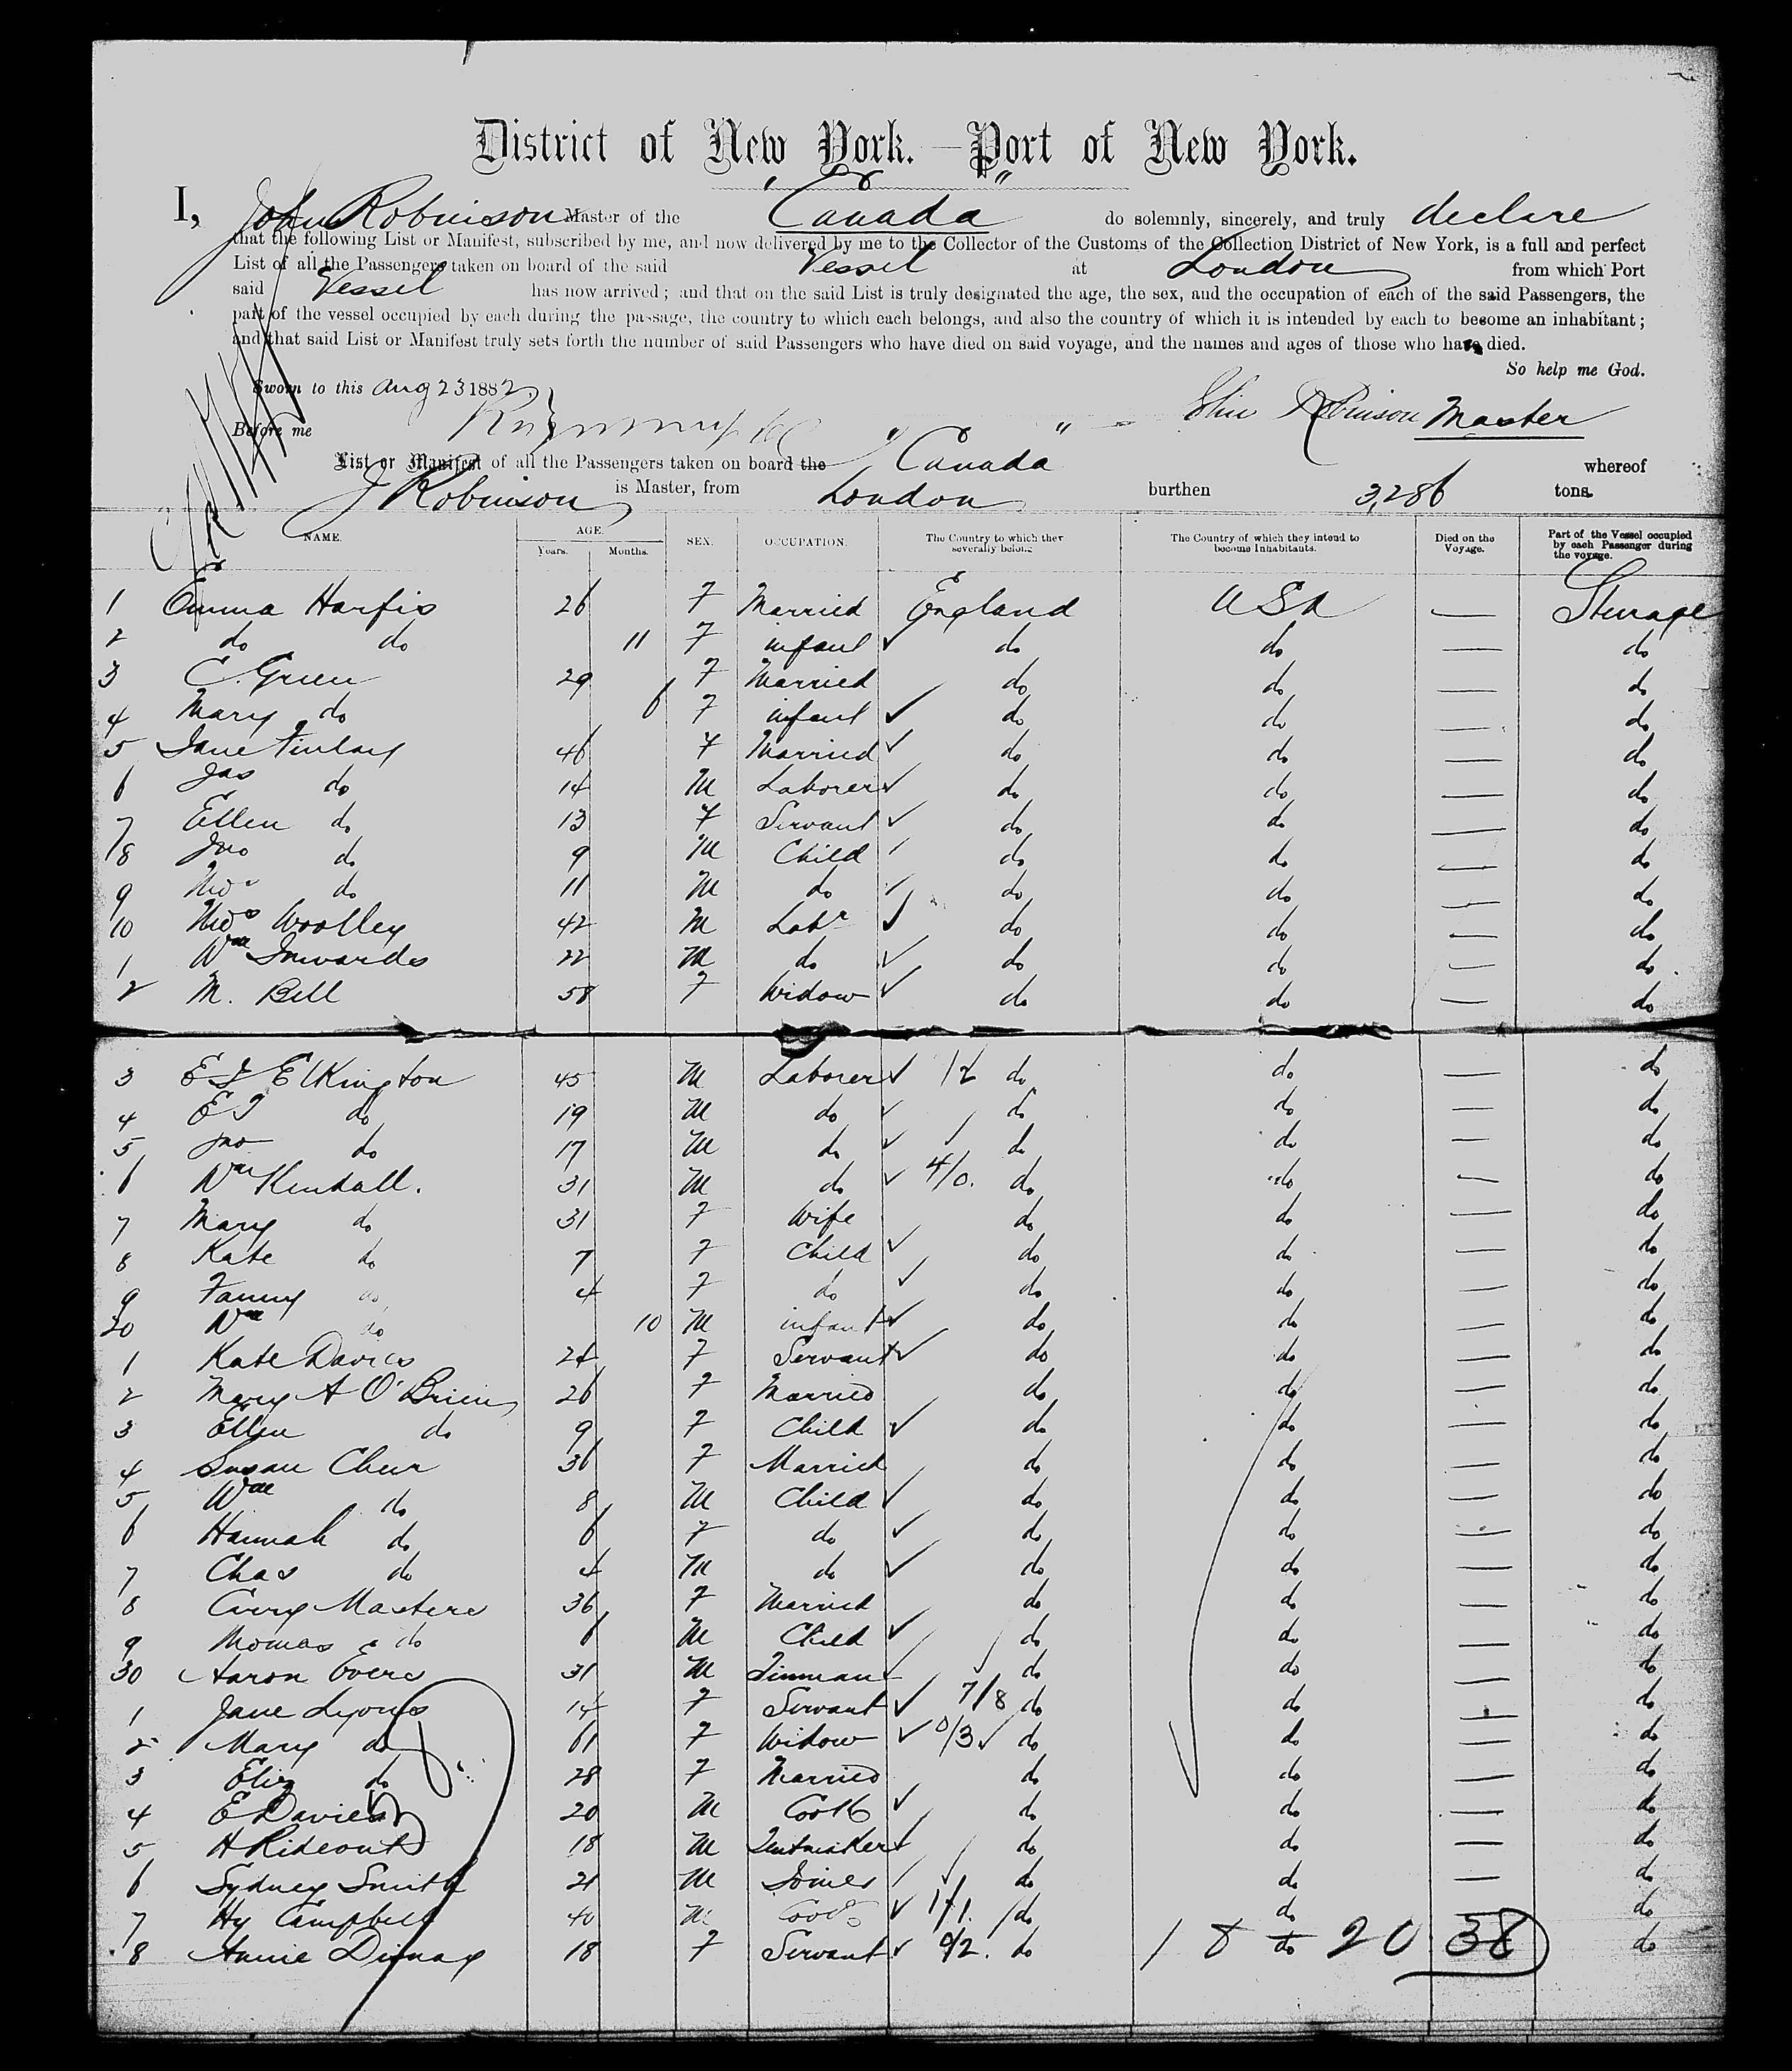 District of New York.—Port of New York.
I, John Robinson Master of the "Canada" do solemnly, sincerely, and truly declare
that the following List or Manifest, subscribed by me, and now delivered by me to the Collector of the Customs of the Collection District of New York, is a full and perfect
List of all the Passengers taken on board of the said Vessel at London from which Port
said Vessel has now arrived; and that on the said List is truly designated the age, the sex, and the occupation of each of the said Passengers, the
part of the vessel occupied by each during the passage, the country to which each belongs, and also the country of which it is intended by each to become an inhabitant;
and that said List or Manifest truly sets forth the number of said Passengers who have died on said voyage, and the names and ages of those who have died.
So help me God.
Sworn to this Aug 23 1882
John Robinson Master
Before me
List or Manifest of all the Passengers taken on board the "Canada" whereof
J Robinson is Master, from London burthen 3,286 tons.
NAME. AGE. Years. Months. SEX. OCCUPATION. The Country to which they severally belong. The Country of which they intend to become Inhabitants. Died on the Voyage. Part of the Vessel occupied by each Passenger during the voyage.
1 Emma Harfis 26 F Married England USA — Steerage
2 do do 11 F infant ✓ do do — do
3 C. Green 29 F Married do do — do
4 Mary do 6 F infant ✓ do do — do
5 Jane Finlay 46 F Married ✓ do do — do
6 Jas do 14 M Laborer ✓ do do — do
7 Ellen do 13 F Servant ✓ do do — do
8 Jno do 9 M Child do do — do
9 Thos do 11 M do ✓ do do — do
10 Thos Woolley 42 M Labr ✓ do do — do
1 Wm Inwards 22 M do ✓ do do — do
2 M. Bell 58 F Widow ✓ do do — do
3 E J Elkington 45 M Laborer ✓ 12 do do — do
4 E J do 19 M do ✓ do do — do
5 Jno do 17 M do ✓ ✓ do do — do
6 Wm Kendall. 31 M do ✓ 4/0. do do — do
7 Mary do 31 F Wife do do — do
8 Kate do 7 F Child ✓ do do — do
9 Fanny do 4 F do ✓ do do — do
20 Wm do 10 M infant ✓ do do — do
1 Kate Davies 24 F Servant ✓ do do — do
2 Mary A O'Brien 26 F Married do do — do
3 Ellen do 9 F Child ✓ do do — do
4 Susan Chur 36 F Married do do — do
5 Wm do 8 M Child ✓ do do — do
6 Hannah do 6 F do ✓ do do — do
7 Chas do 4 M do ✓ do do — do
8 Masters 36 F Married do do — do
9 Thomas do 6 M Child ✓ do do — do
30 Aaron Evers 31 M Tinman ✓ ✓ do do — do
1 Jane Lyons 14 F Servant ✓ 7/8 do do — do
2 Mary do 61 F Widow ✓ 0/3 ✓ do do — do
3 Eliz do 28 F Married do do — do
4 E Davies 20 M Cook ✓ do do — do
5 H Rideout 18 M Tentmaker ✓ do do — do
6 Sydney Smith 21 M Joiner ✓ do do — do
7 Hy Campbell 40 M Cook ✓ 1/1. do do — do
8 Annie 18 F Servant ✓ 0/2. do do do
18 20 38